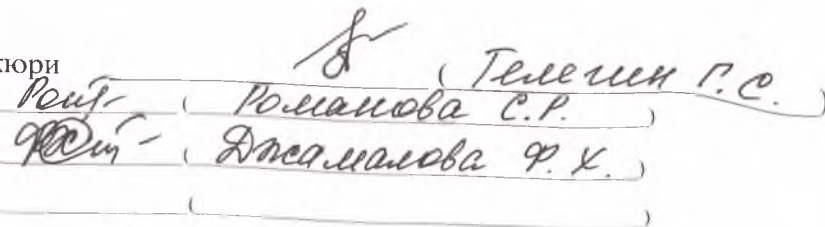 жюри
( Телегин Г.С. )
( Романова С.Р. )
( Джамалова Ф.Х. )
( )